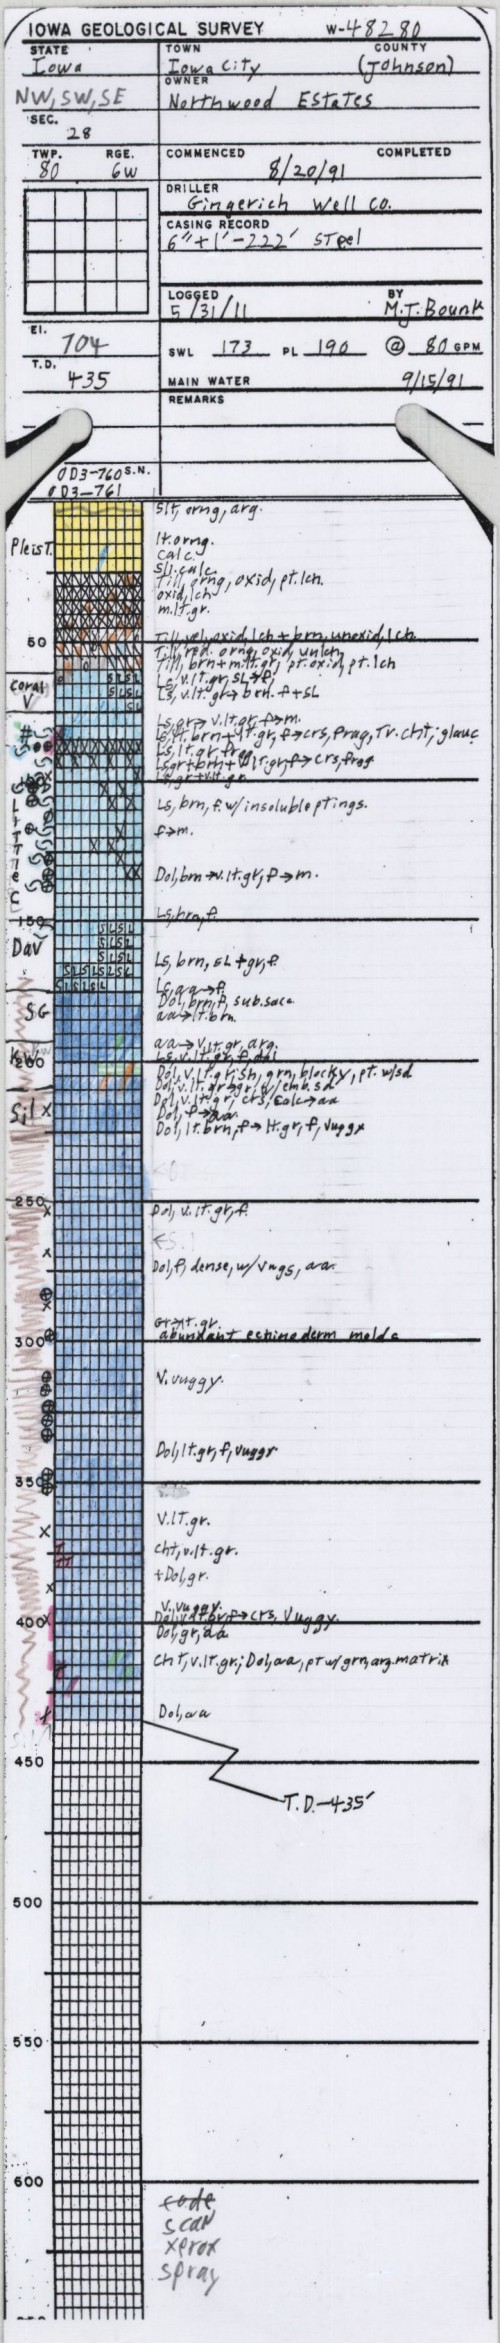 IOWA GEOLOGICAL SURVEY W-48280
STATE TOWN COUNTY
Iowa Iowa City (Johnson)
OWNER
NW, SW, SE Northwood Estates
SEC.
28
TWP. RGE. COMMENCED COMPLETED
80 6W 8/20/91
DRILLER
Gingerich Well Co.
CASING RECORD
6" +1'-222' Steel
LOGGED BY
5/31/11 M.J. Bounk
El.
704
SWL 173 PL 190 @ 80 GPM
T.D.
435
MAIN WATER 9/15/91
REMARKS
S.N.
OD3-760
OD3-761
Slt, orng, arg.
Pleist.
lt. orng.
calc.
Sli. calc.
Till, orng, oxid, pt. lch.
oxid, lch
m. lt. gr.
50
Till, yel, oxid, lch + brn, unoxid, lch
Till, red. orng, oxid, unlch
Till, brn + m. lt. gr, pt. oxid, pt. lch
Ls, v. lt. gr, SL→f;
Coral V
Ls, v. lt. gr→brn. f+SL
Ls, gr→v. lt. gr, f→m.
Ls, lt. brn+v. lt. gr, f→crs, frag, Tr. cht, glauc
Ls, lt. gr, frag
Ls, gr+brn+v. lt. gr, f→crs, frag
Ls, gr+v. lt. gr
Little C
Ls, brn, f. w/ insoluble ptings.
f→m.
Dol, brn→v. lt. gr, f→m.
150
Ls, brn, f.
Dav
Ls, brn, SL+gr, f.
Ls, aa→f.
Dol, brn, f, sub. sacc
SG
aa→lt. brn.
aa→v. lt. gr, arg.
KW
Ls, v. lt. gr, f, dol
200
Dol, v. lt. gr; sh, grn, blocky, pt. w/sd
Dol, v. lt. gr, crs, calc→aa
Sil
Dol, f→aa.
Dol, lt. brn, f→lt. gr, f, vuggy
250
Dol, v. lt. gr, f.
Dol, f, dense, w/ vugs, aa.
Gr→lt. gr.
abundant echinoderm molds
300
V. vuggy.
Dol, lt. gr, f, vuggy
350
V. lt. gr.
cht, v. lt. gr.
+Dol, gr.
V. vuggy.
400
Dol, gr, aa.
Cht, v. lt. gr; Dol, aa, pt w/ grn, arg. matrix
Dol, aa
450
T.D.-435'
500
550
600
code
scan
xerox
spray